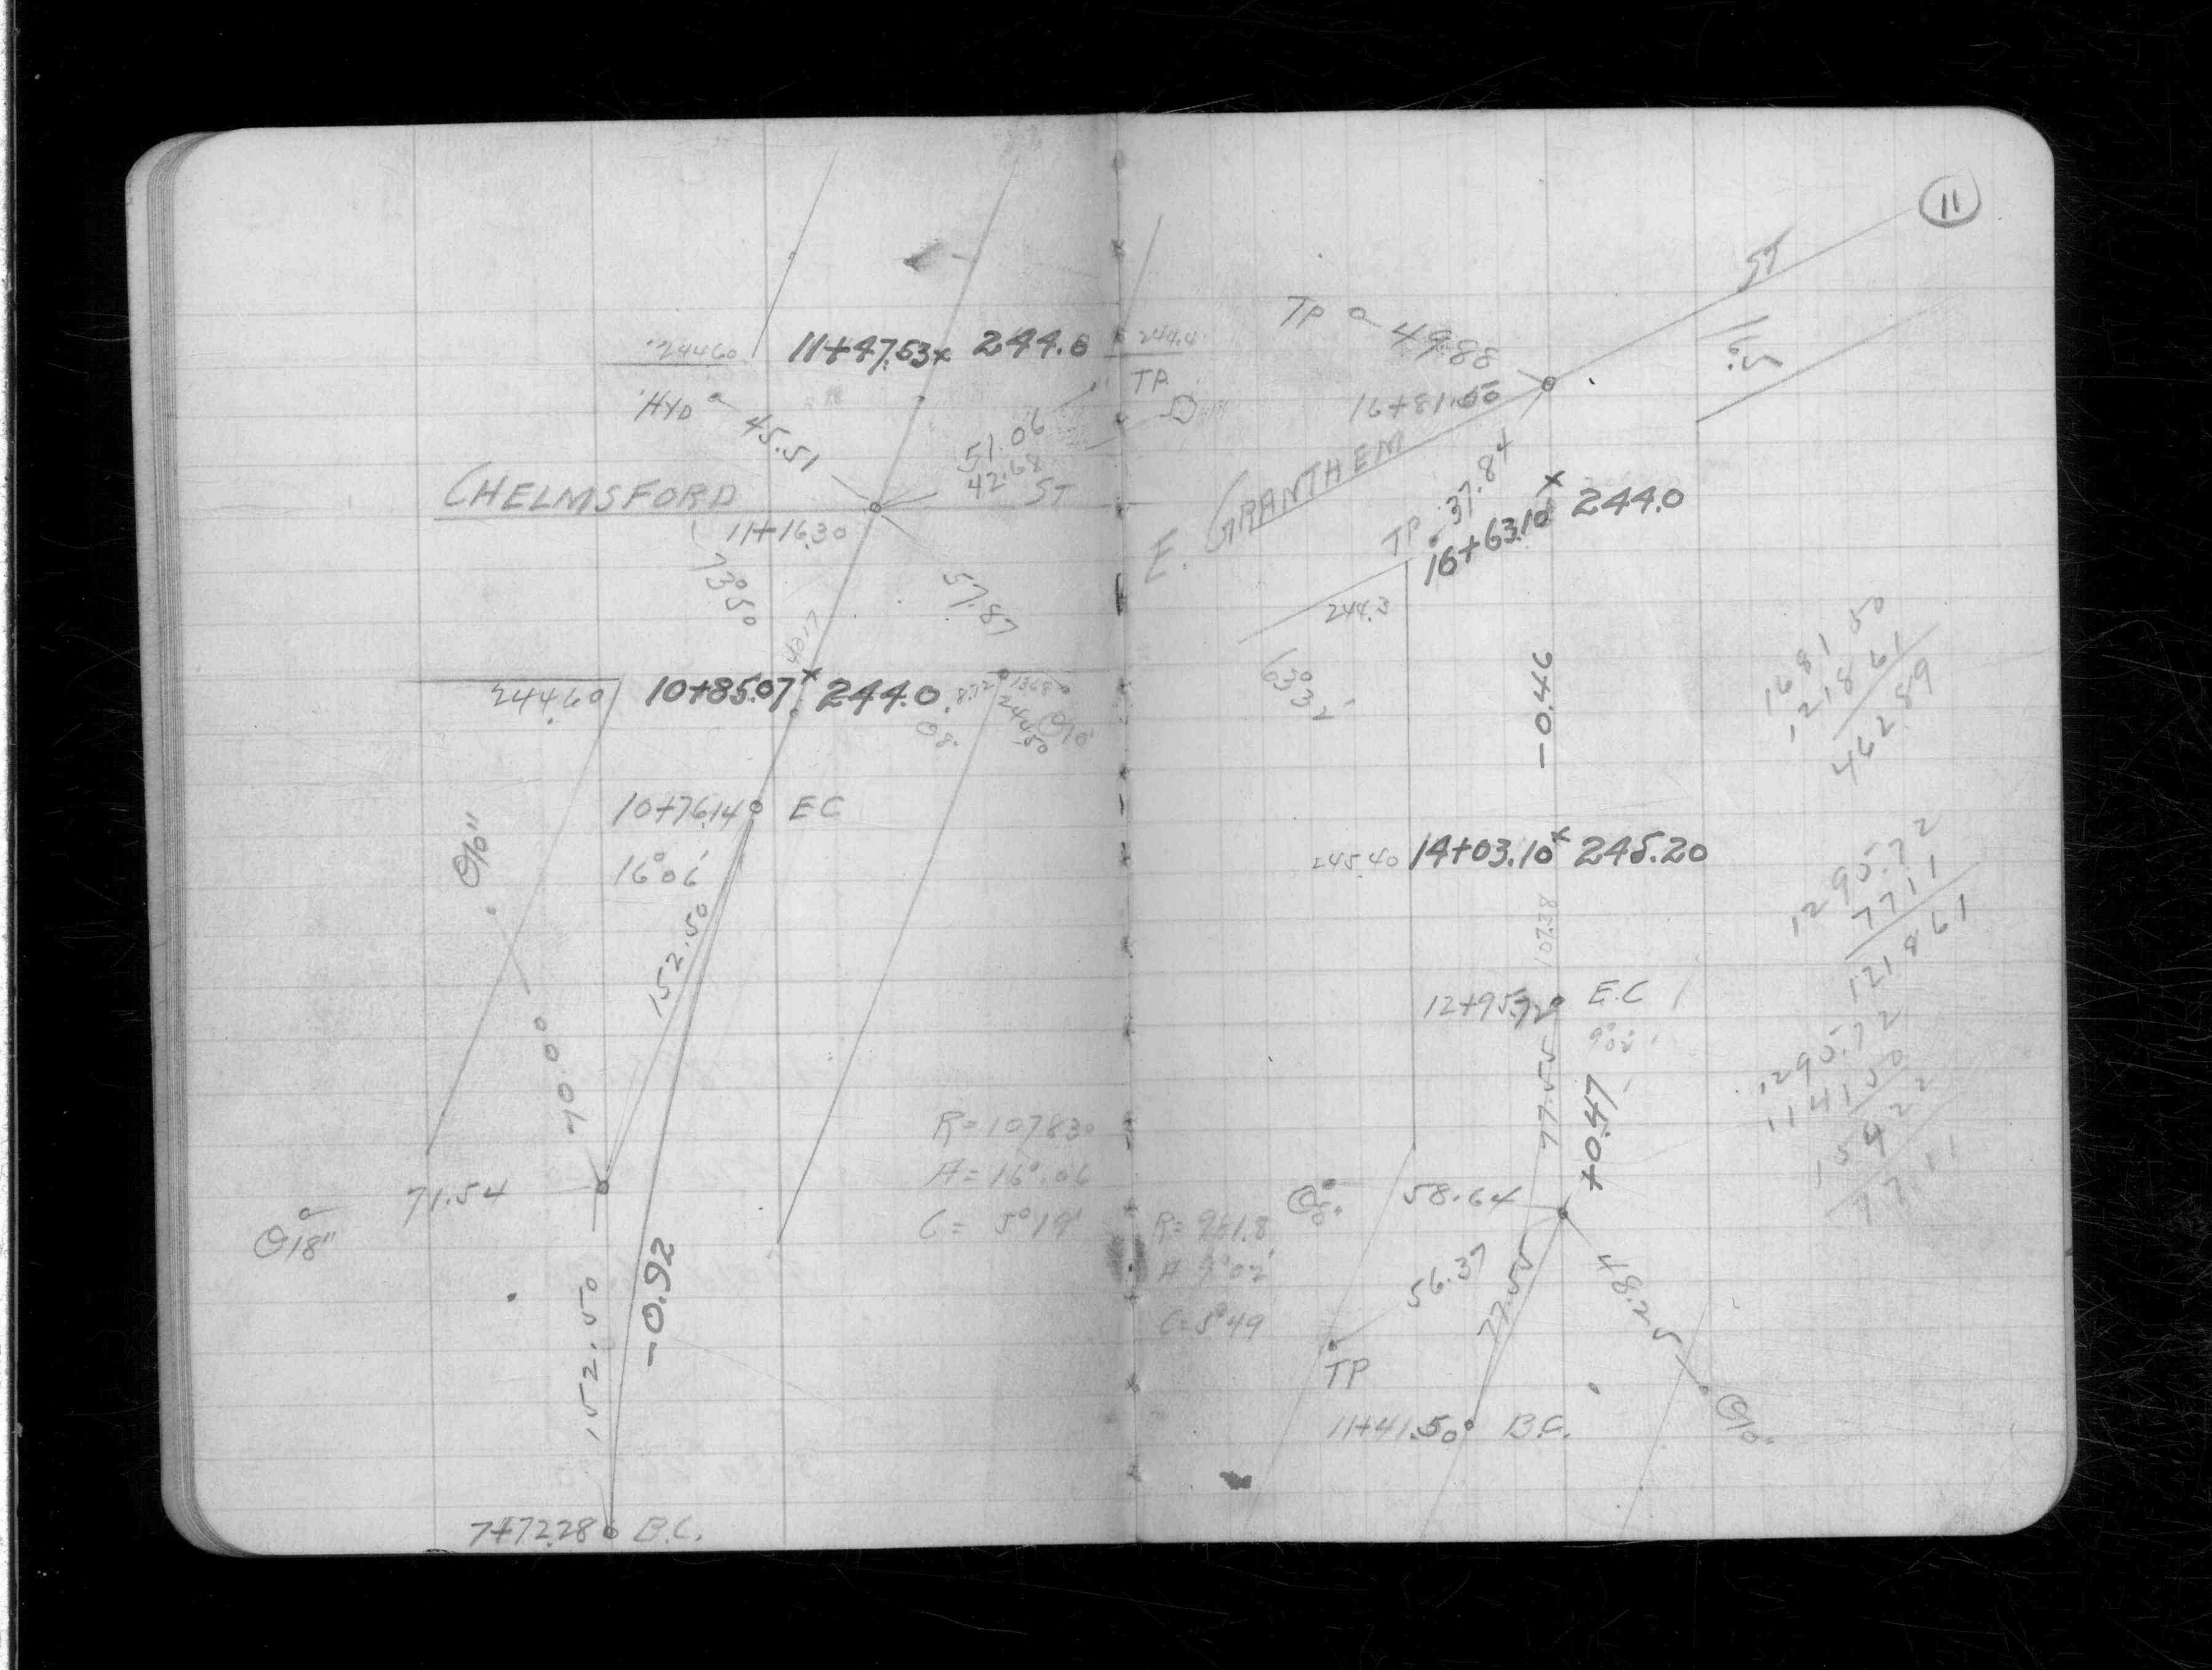 24460
11+47.53x 244.0
HYD
45.51
51.06
42.68
CHELMSFORD ST
11+16.30
73°50
57.87
40.17
244.60
10+85.07x 244.0
8.72
1368
24450
O10'
O8"
10+76.14 EC
16°06'
O10"
152.50
70.00
71.54
O18"
R=1078.30
A=16°.06
C= 5°19'
-0.92
152.50
7+72.28 B.C.
11
ST
16.5
TP
49.88
244.4
TP
16+81.50
E. GRANTHEM
TP
37.84
16+63.10x 244.0
244.3
63°32'
-0.46
1681 50
1218 61
462.89
245.40 14+03.10x 245.20
107.38
1295.72
77 11
1218 61
12+95.72 E.C
9°02'
77.55
+0.47
1295.72
1141 50
154 22
77.11
O8"
58.64
R= 951.8
A 9°02'
C=5°49
56.37
77.55
48.25
TP
O10"
11+41.50 B.C.